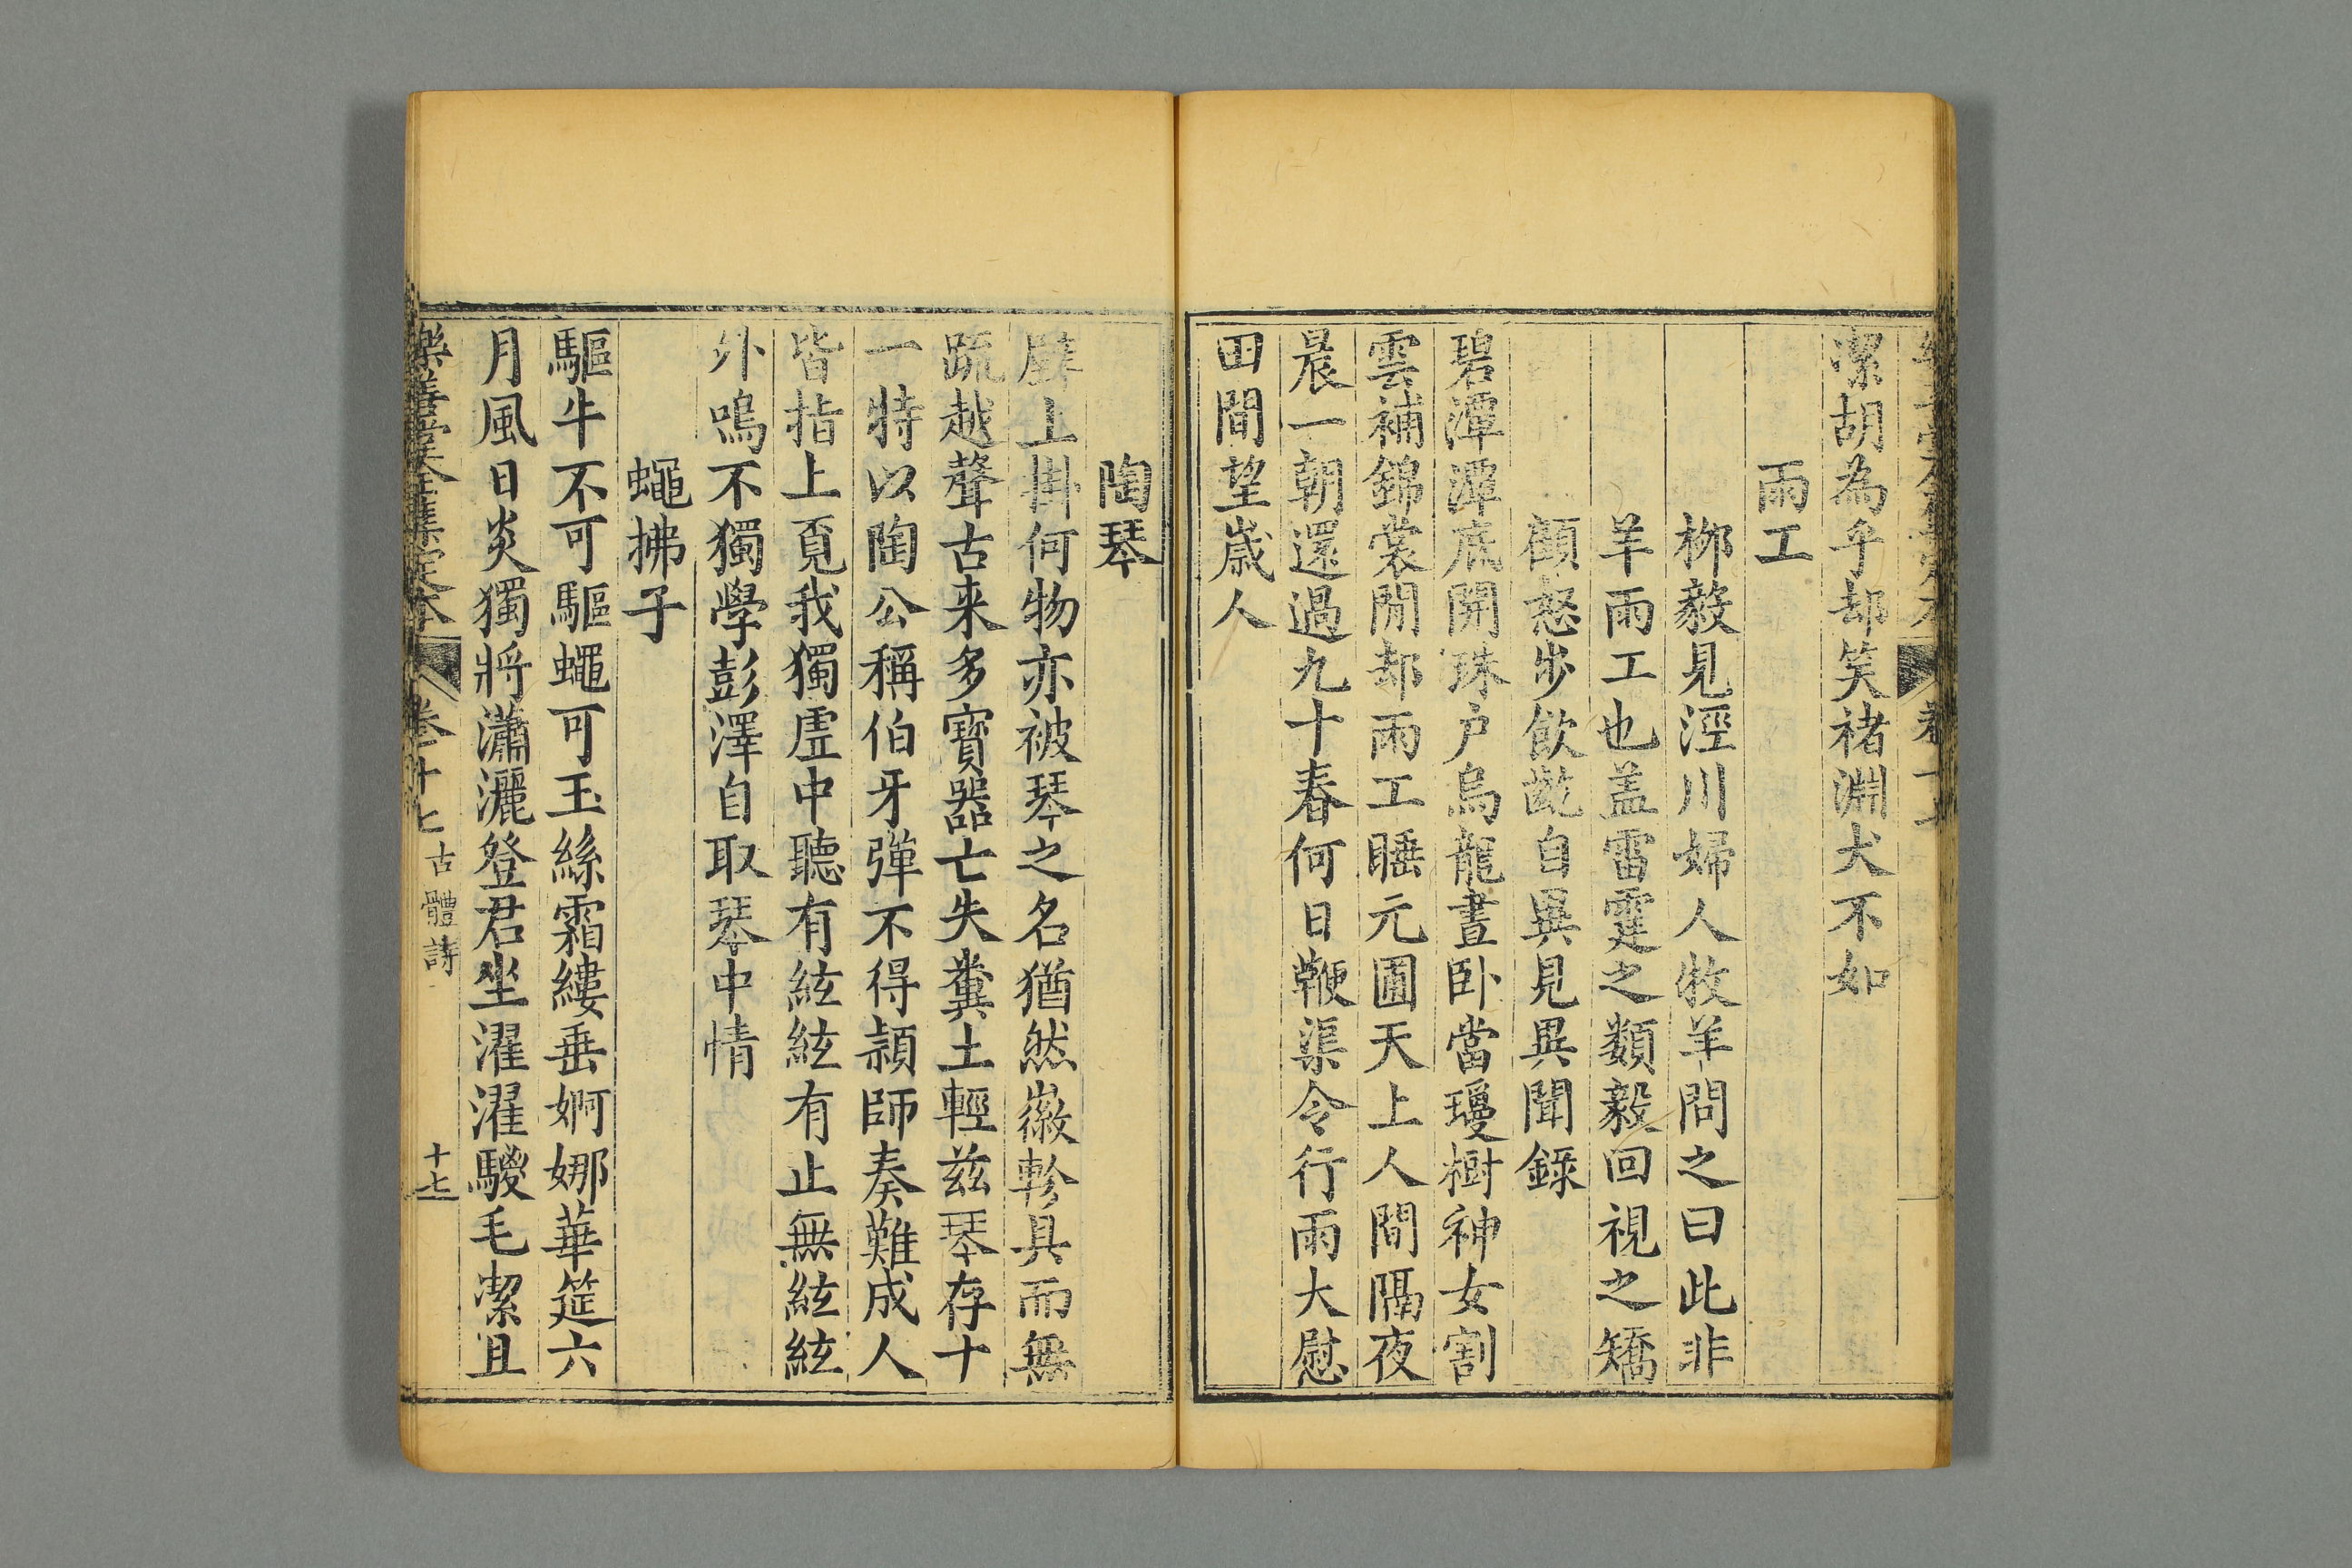 潔胡為乎却笑褚淵犬不如
雨工
栁毅見涇川婦人牧羊問之曰此非
羊雨工也盖雷霆之類毅回視之矯
顧怒步飲齕自異見異聞録
碧潭潭底開珠户烏龍晝卧當瓊樹神女割
雲補錦裳閒却雨工睡元圃天上人間隔夜
晨一朝還過九十春何日鞭渠令行雨大慰
田間望歲人
陶琴
壁上掛何物亦被琴之名猶然徽軫具而無
疏越聲古来多寶器亡失糞土輕兹琴存十
一特以陶公稱伯牙彈不得潁師奏難成人
皆指上覓我獨虛中聽有絃絃有止無絃絃
外鳴不獨學彭澤自取琴中情
蠅拂子
驅牛不可驅蠅可玉絲霜縷垂婀娜華筵六
月風日炎獨將瀟灑登君坐濯濯騣毛潔且
樂善堂全集定本 卷十七 古體詩 十七